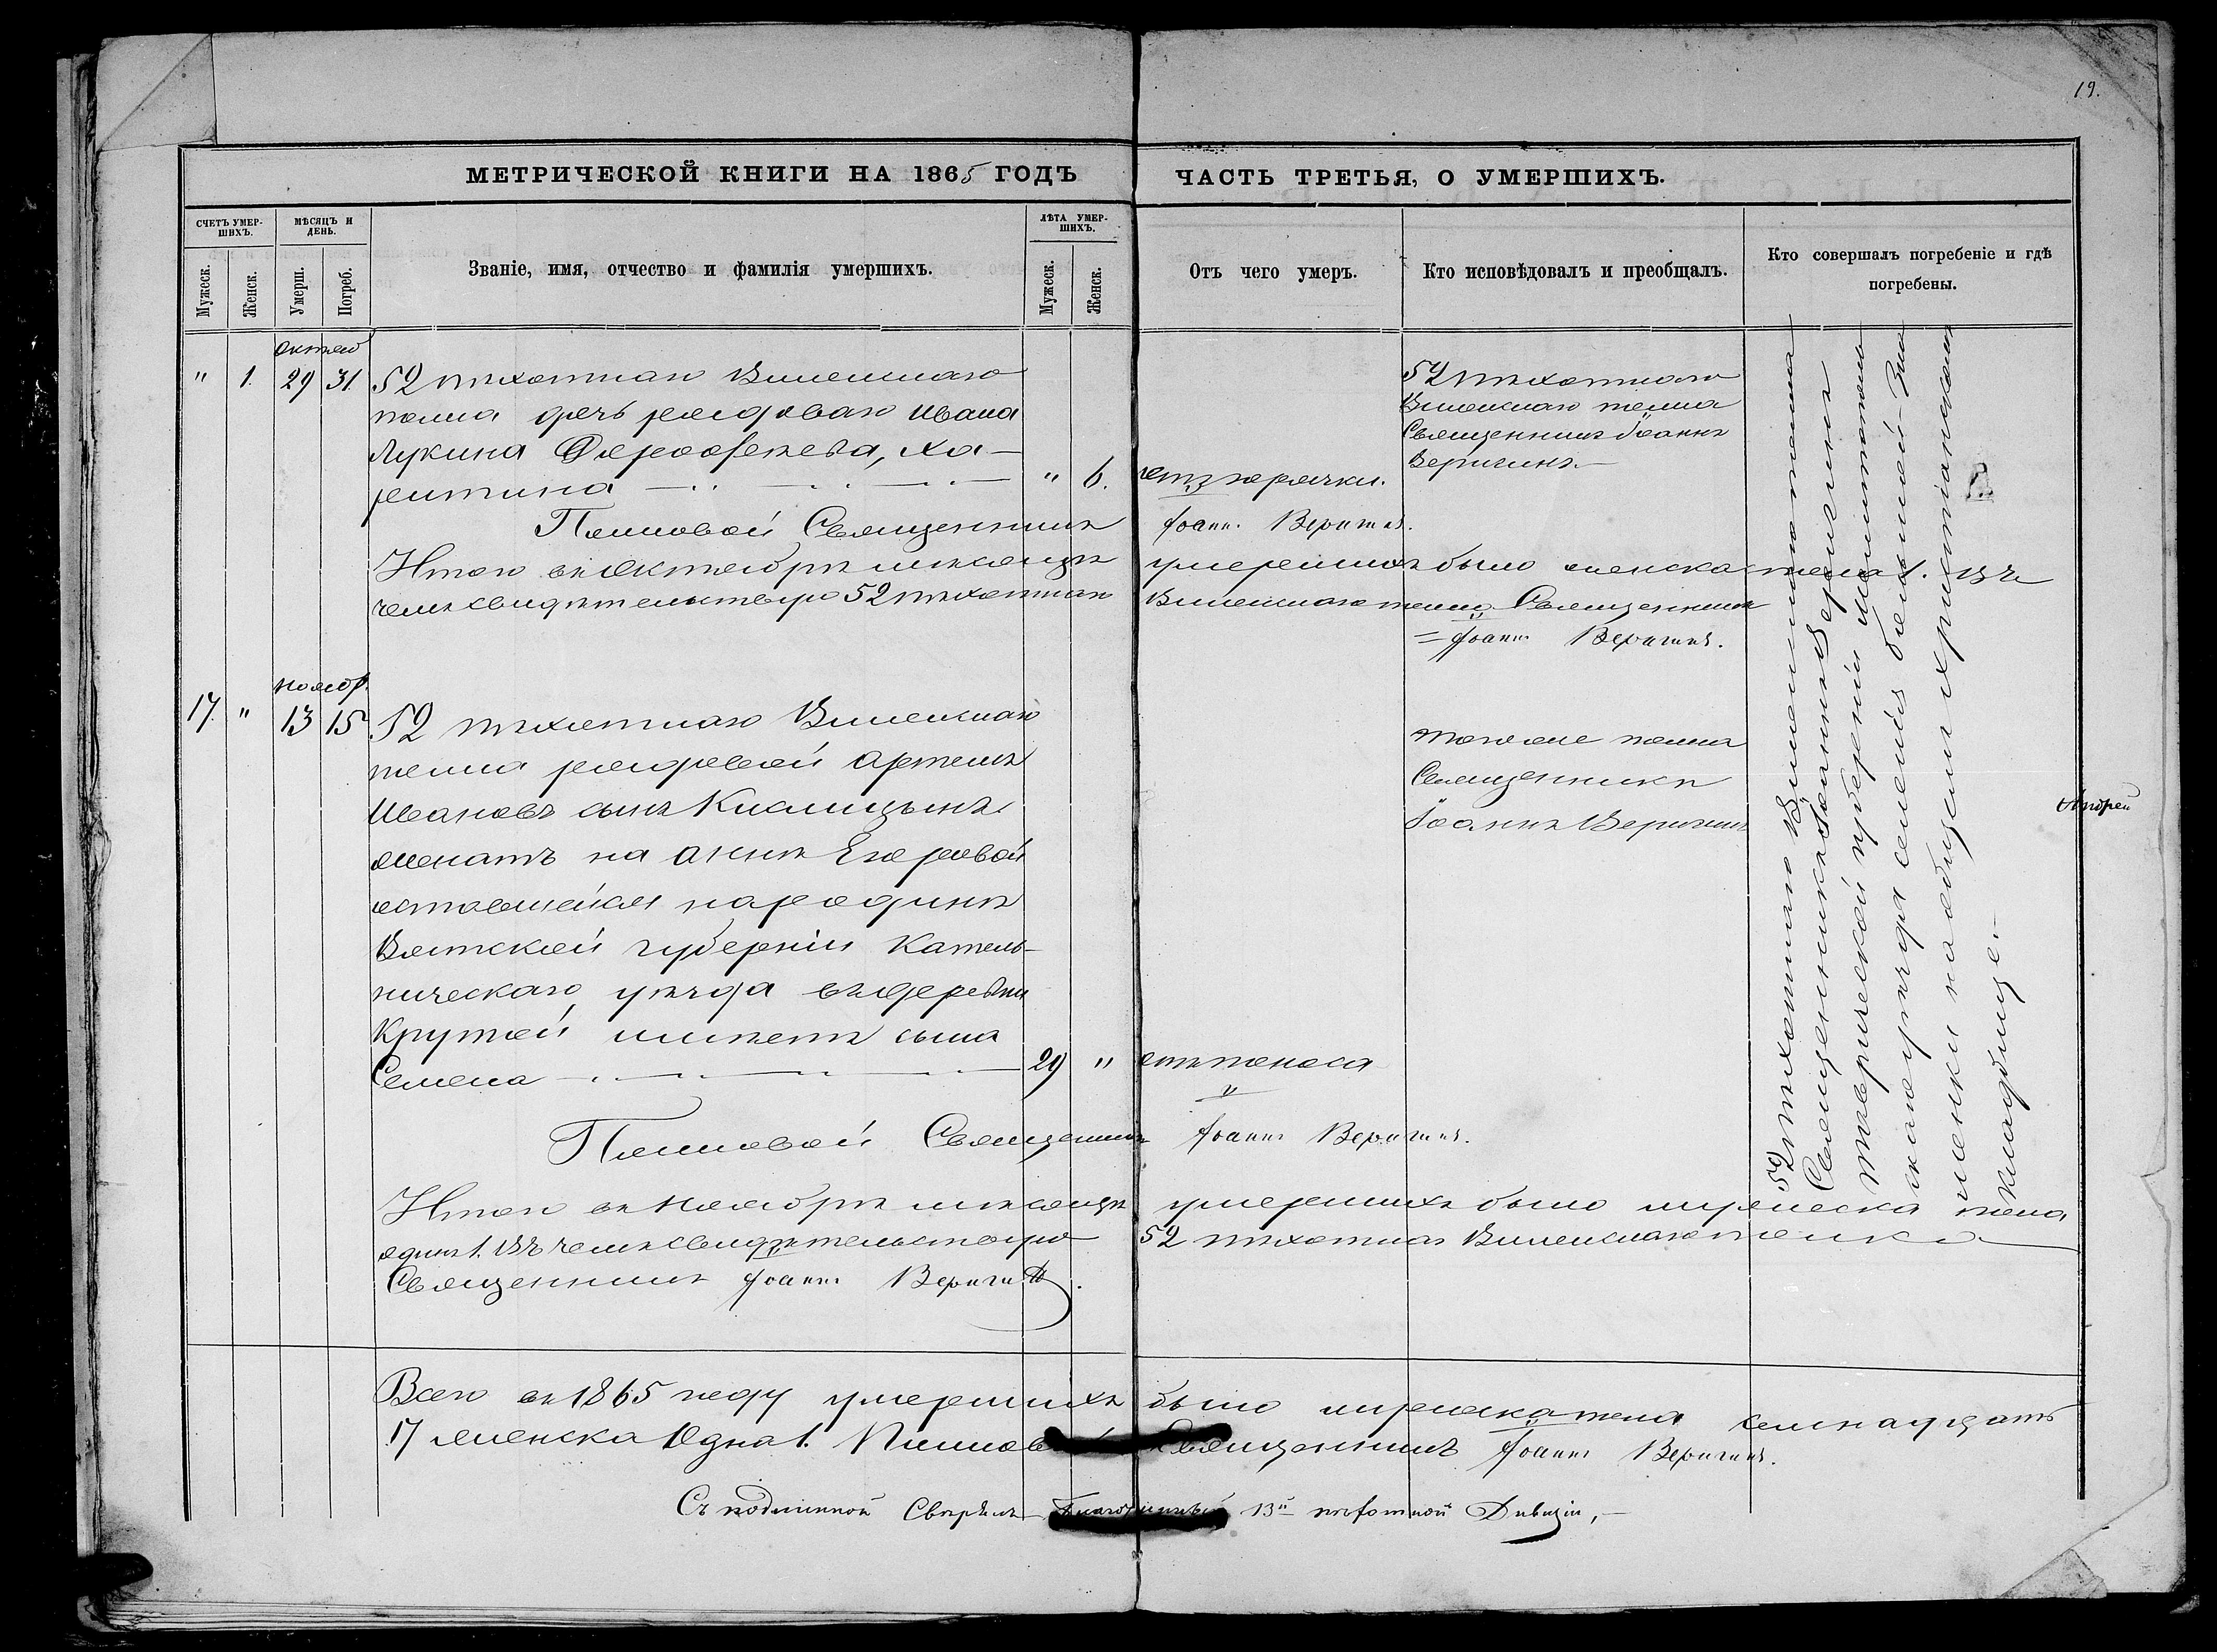 19.
МЕТРИЧЕСКОЙ КНИГИ НА 1865 ГОДЪ
ЧАСТЬ ТРЕТЬЯ, О УМЕРШИХЪ.
СЧЕТЪ УМЕР-
ШИХЪ.
МѢСЯЦЪ И
ДЕНЬ.
Званіе, имя, отчество и фамилія умершихъ.
ЛѢТА УМЕР-
ШИХЪ.
Отъ чего умеръ.
Кто исповѣдовалъ и преобщалъ.
Кто совершалъ погребеніе и гдѣ
погребены.
Мужеск.
Женск.
Умерш.
Погреб.
Мужеск.
Женск.
" 1. 29 31 52 пѣхотнаго Виленскаго
полка дочь рядоваго Ивана
Лукина Дорофеева, Ха-
ритина " 6. отъ горячки.
52 пѣхотнаго
Виленскаго полка
Священникъ Іоаннъ
Веригинъ.
Полковой Священникъ Іоаннъ Веригинъ.
Итого въ Октябрѣ мѣсяцѣ умершихъ было женска пола 1. Въ
чемъ свидѣтельствую 52 пѣхотнаго Виленскаго полка Священникъ
Іоаннъ Веригинъ.
Ноябр.
17. " 13 15 52 пѣхотнаго Виленскаго
полка рядовой Артемъ
Ивановъ сынъ
женатъ на Аннѣ Егоровой
оставшейся на родинѣ
Вятской губерніи Катель-
ническаго уѣзда въ деревни
Крутой имѣетъ сына
Семена 29 " отъ поноса
тогоже полка
Священникъ
Іоаннъ Веригинъ
52 пѣхотнаго Виленскаго полка
Священникъ Іоаннъ Веригинъ
Таврической губерніи Мелитополь
скаго уѣзда селенія большой Зна
менки на общем христіанском
кладбище.
Андрей
Полковой Священникъ Іоаннъ Веригинъ.
Итого въ Ноябрѣ мѣсяцѣ умершихъ было мужеска пола
одинъ 1. Въ чемъ свидѣтельствую 52 пѣхотнаго Виленскаго полка
Священникъ Іоаннъ Веригинъ.
Всего въ 1865 году умершихъ было мужеска пола семнадцать
17 женска Одна 1. Полковой Священникъ Іоаннъ Веригинъ.
Съ подлинной Свѣрялъ Благочинный 13й пѣхотной Дивизіи,